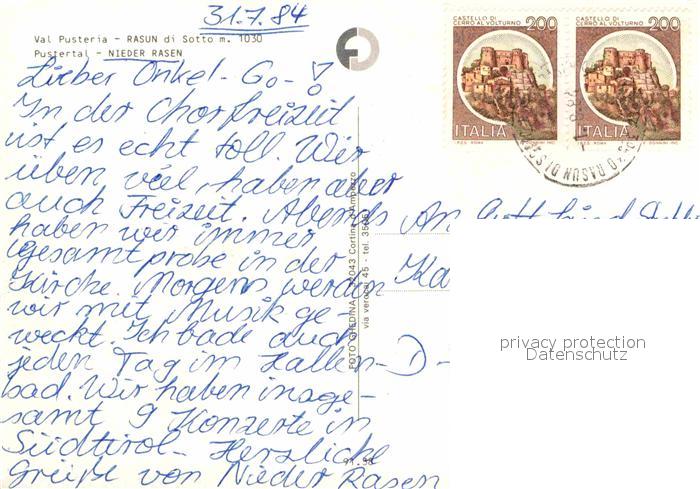 31.7.84
Val Pusteria - RASUN di Sotto m. 1030
Pustertal - NIEDER RASEN
Lieber Onkel - Go - !
In der Chorfreizeit
ist es echt toll. Wir
üben viel, haben aber
auch Freizeit. Abends
haben wir immer
Gesamtprobe in der
Kirche. Morgens werden
wir mit Musik ge-
weckt. Ich bade auch
jeden Tag im Hallen-
bad. Wir haben insge-
samt 9 Konzerte in
Südtirol. Herzliche
Grüße von Nieder Rasen
FOTO GHEDINA - 32043 Cortina d'Ampezzo
via verocai 45 - tel.
CASTELLO DI CERRO AL VOLTURNO 200
ITALIA
P.S. ROMA
CASTELLO DI CERRO AL VOLTURNO 200
ITALIA
P.S. ROMA
RASUN DI
An
Ka
D-
privacy protection
Datenschutz